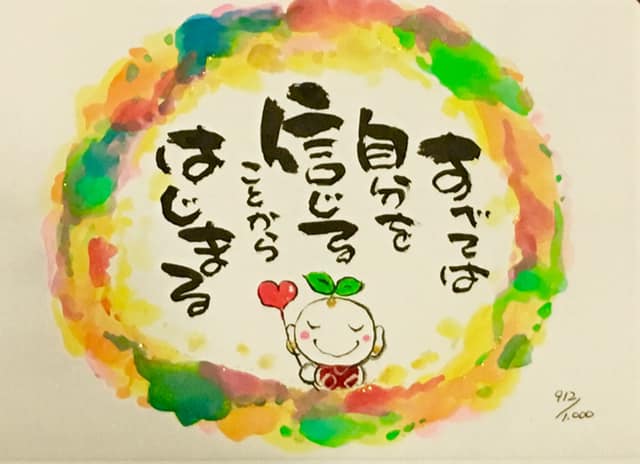 すべては
自分を
信じる
ことから
はじまる
912/1.000